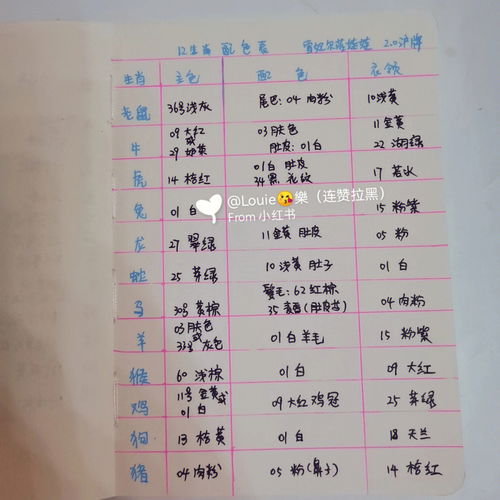 12生肖 配色表 雪妃尔莎娃娃 2.0沪牌
生肖 主色 配色 衣领
老鼠 36号浅灰 尾巴:04肉粉 10浅黄
牛 09大红或29奶茶 03肤色 肚皮:01白 11金黄 22湖绿
虎 14桔红 01白 肚皮 34黑 花纹 17若水
兔 01白 15粉紫
龙 27翠绿 11金黄 肚皮 05粉
蛇 25芽绿 10浅黄 肚子 01白
马 30号黄棕 鬃毛:62红棕 35麦色(肚皮等) 04肉粉
羊 03肤色或33号灰色 01白羊毛 15粉紫
猴 60浅棕 01白 09大红
鸡 11号金黄或01白 09大红鸡冠 25芽绿
狗 13桔黄 01白 18天兰
猪 04肉粉 05粉(鼻子) 14桔红
@Louie😘樂(连赞拉黑)
From 小红书